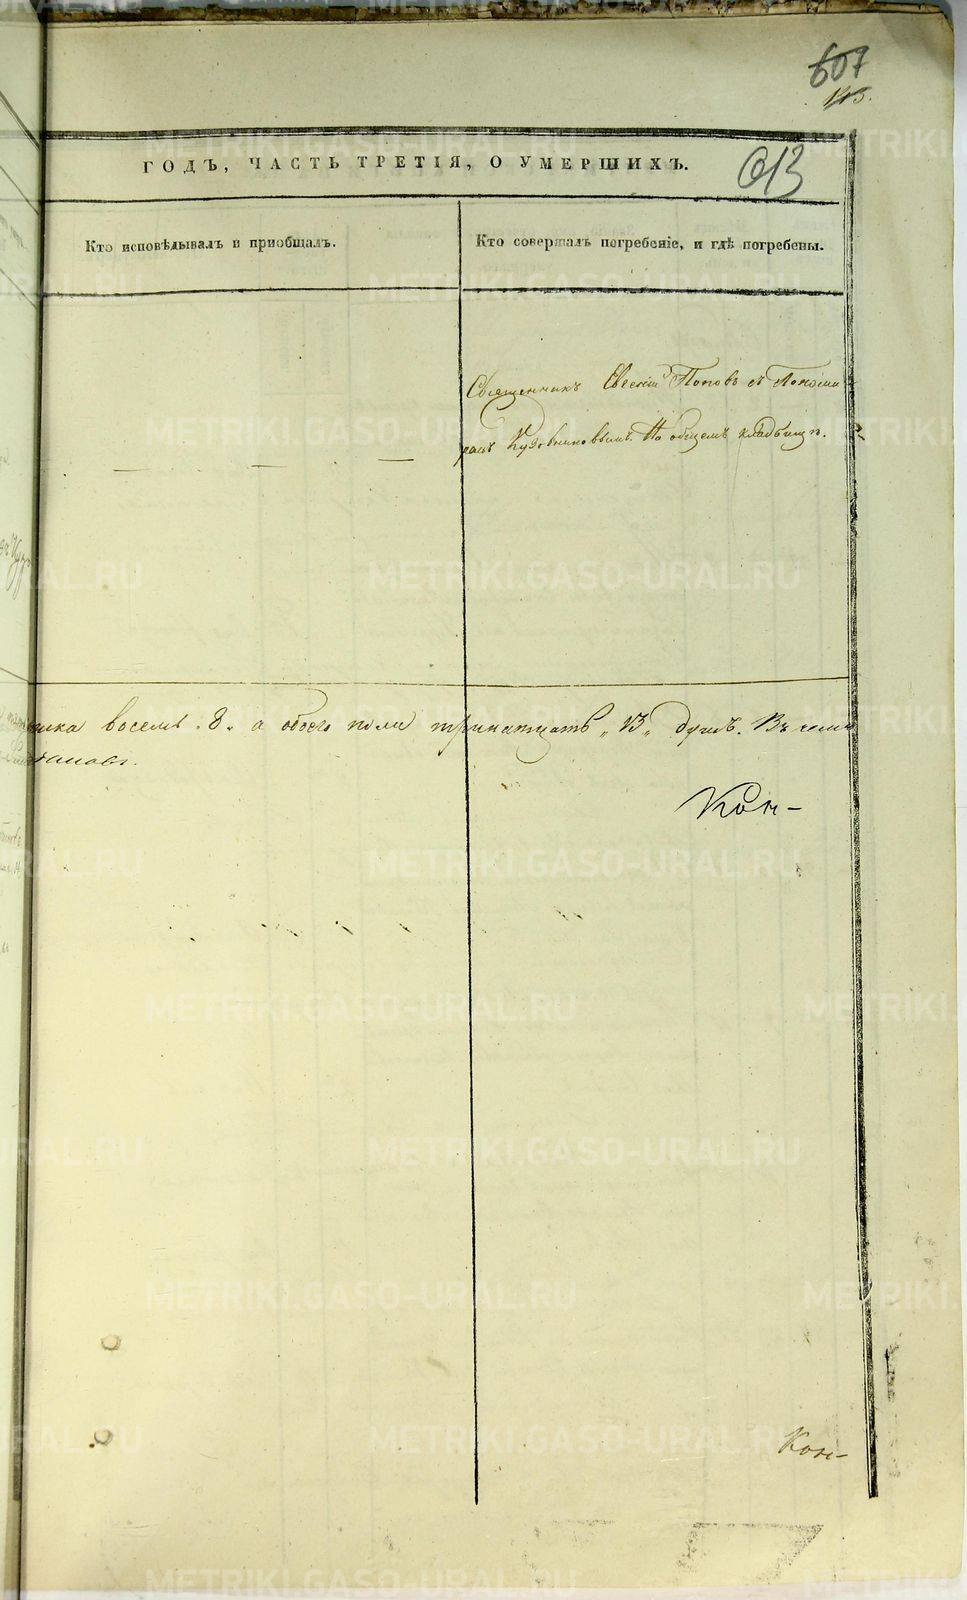 607
113.
613
ГОДЪ, ЧАСТЬ ТРЕТІЯ, О УМЕРШИХЪ.
Кто исповѣдывалъ и приобщалъ.
Кто совершалъ погребеніе, и гдѣ погребены.
Священникъ Евсевій Поповъ съ Понома
ремъ Кудрвниковымъ. На общемъ кладбищѣ.
— — —
восемь . 8 . а обоего пола тринатцать „ 13 „ душъ. Въ чемъ
Кон-
Кон-
METRIKI.GASO-URAL.RU